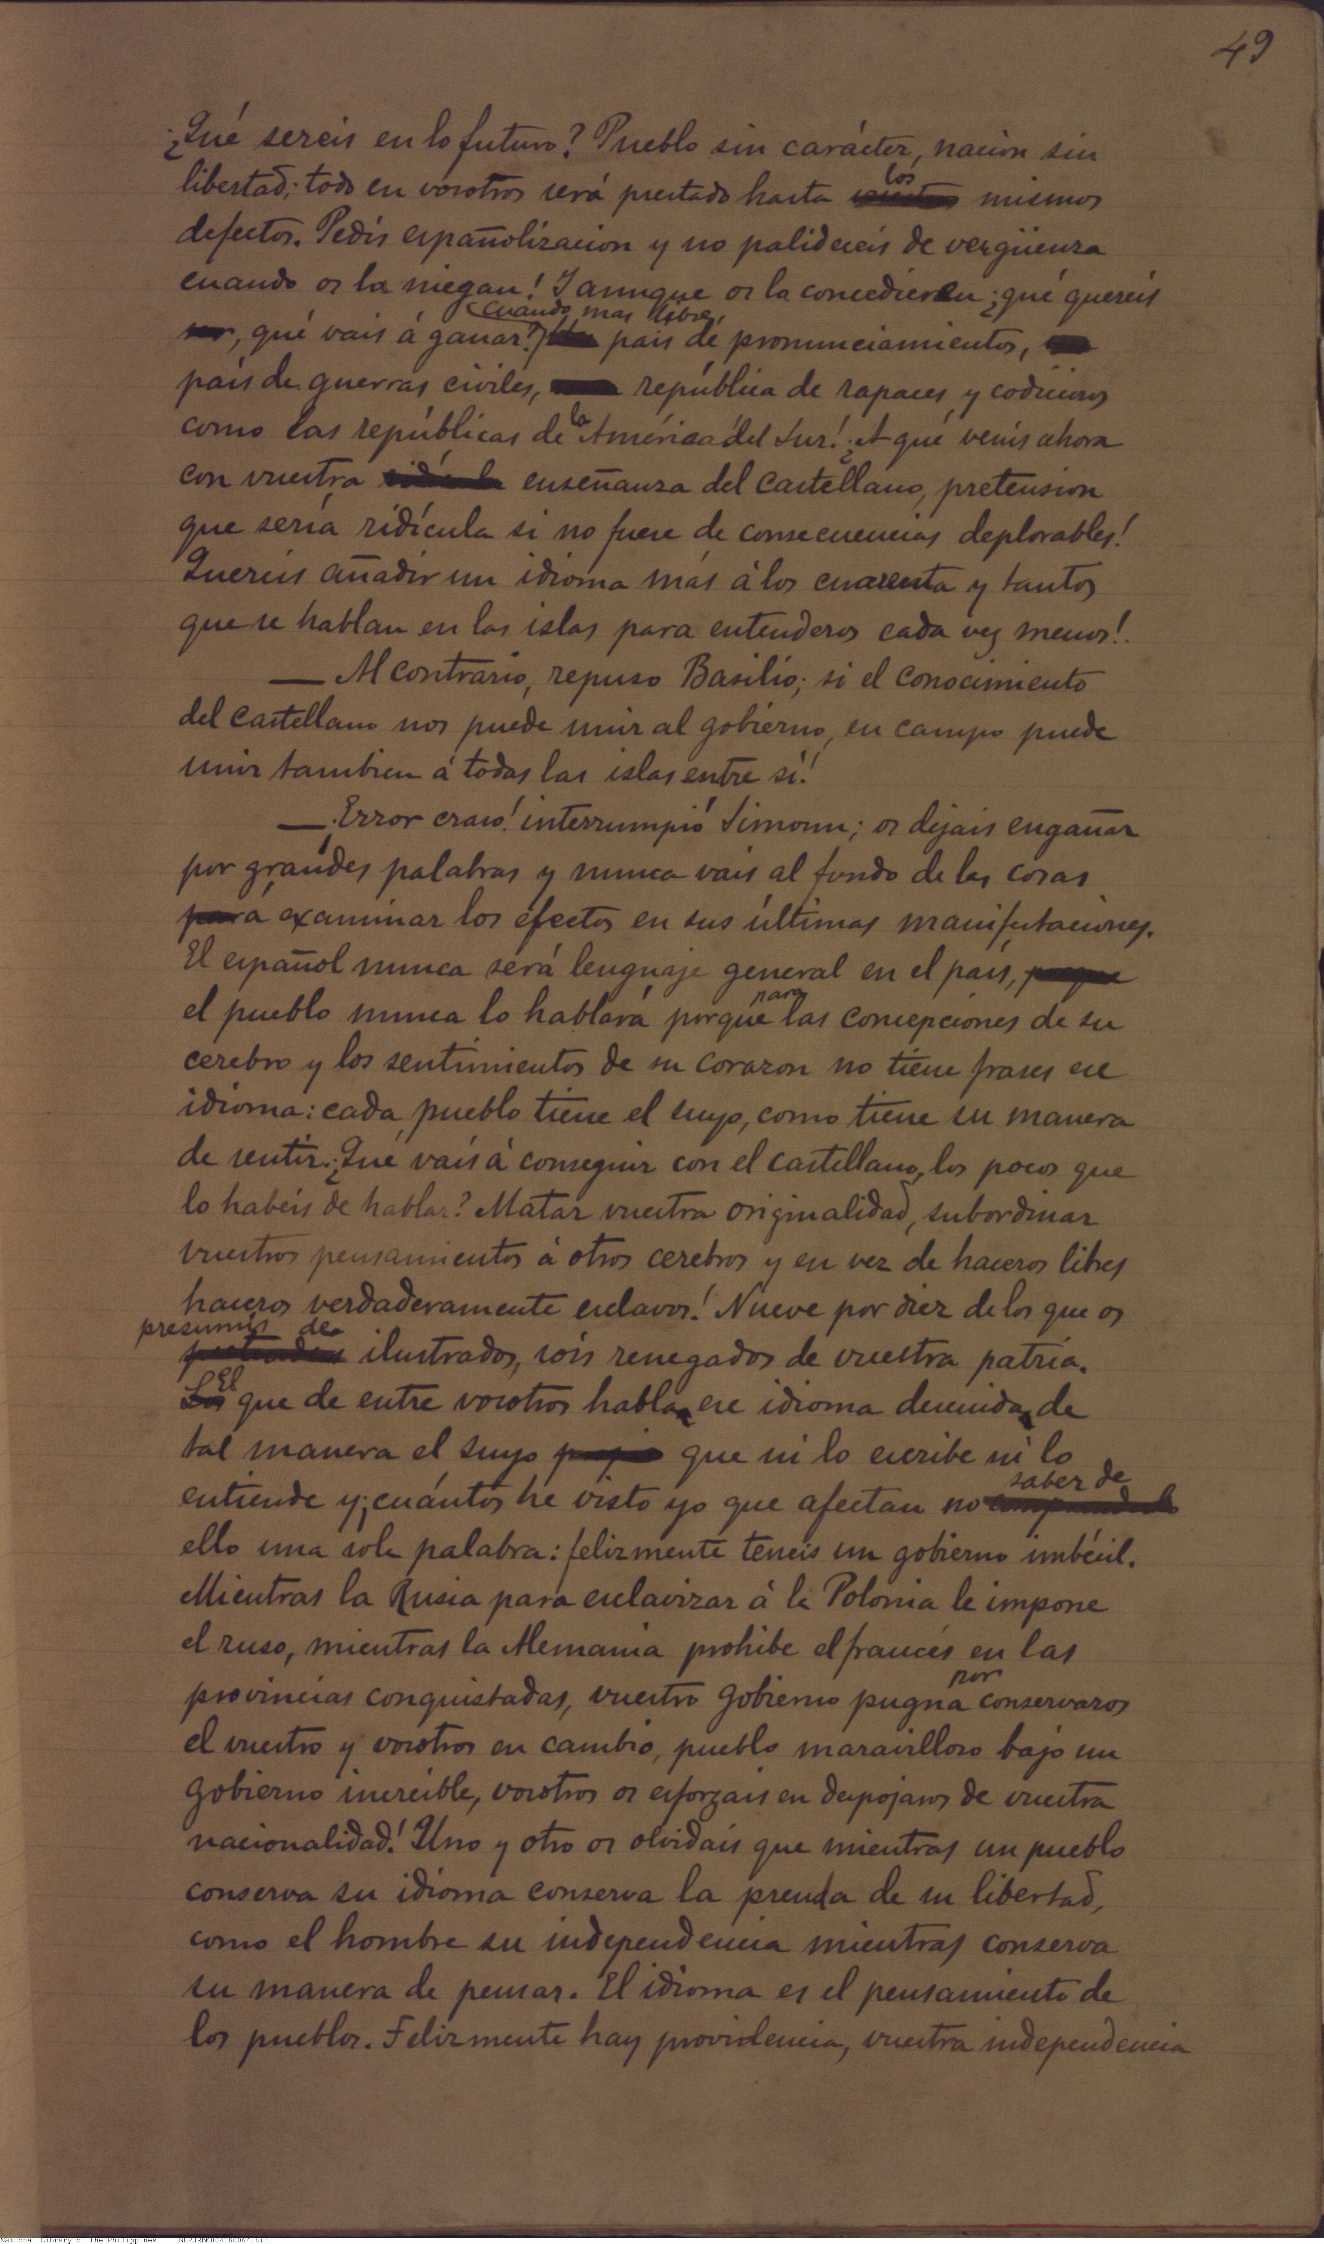 49
¿Qué sereis en lo futuro? Pueblo sin carácter, nacion sin
libertad; todo en vosotros será prestado hasta los mismos
defectos. Pedís españolizacion y no palideceis de vergüenza
cuando os la niegan! Y aunque os la concedieren ¿qué quereis
cuando mas libre,
ser, qué vais á ganar? pais de pronunciamientos,
país de guerras civiles, república de rapaces y codiciosos
como las repúblicas de la América del Sur! ¿A qué venís ahora
con vuestra ridícula enseñanza del castellano, pretension
que sería ridícula si no fuese de consecuencias deplorables!
Quereis añadir un idioma más á los cuarenta y tantos
que se hablan en las islas para entenderos cada vez menos!.
— Al contrario, repuso Basilio; si el conocimiento
del castellano nos puede unir al gobierno, en campo puede
unir tambien á todas las islas entre sí!
— Error craso! interrumpió Simoun; os dejais engañar
por grandes palabras y nunca vais al fondo de las cosas
para á examinar los efectos en sus últimas manifestaciones.
El español nunca será lenguaje general en el país, porque
el pueblo nunca lo hablará porque para las concepciones de su
cerebro y los sentimientos de su corazon no tiene frases ese
idioma: cada pueblo tiene el suyo, como tiene su manera
de sentir. ¿Qué vais á conseguir con el castellano, los pocos que
lo habeis de hablar? Matar vuestra originalidad, subordinar
vuestros pensamientos á otros cerebros y en vez de haceros libres
haceros verdaderamente esclavos! Nueve por diez de los que os
presumís de
ilustrados, sois renegados de vuestra patria.
Los El que de entre vosotros habla ese idioma descuida de
tal manera el suyo que ni lo escribe ni lo
entiende y ¡cuántos he visto yo que afectan no saber de
ello una sola palabra: felizmente teneis un gobierno imbécil.
Mientras la Rusia para esclavizar á la Polonia le impone
el ruso, mientras la Alemania prohibe el francés en las
provincias conquistadas, vuestro gobierno pugna por conservaros
el vuestro y vosotros en cambio, pueblo maravilloso bajo un
gobierno increíble, vosotros os esforzais en despojaros de vuestra
nacionalidad! Uno y otro os olvidais que mientras un pueblo
conserva su idioma conserva la prenda de su libertad,
como el hombre su independencia mientras conserva
su manera de pensar. El idioma es el pensamiento de
los pueblos. Felizmente hay providencia, vuestra independencia